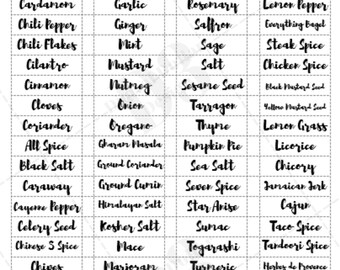 Cardamon Garlic Rosemary Lemon Pepper
Chili Pepper Ginger Saffron Everything Bagel
Chili Flakes Mint Sage Steak Spice
Cilantro Mustard Salt Chicken Spice
Cinnamon Nutmeg Sesame Seed Black Mustard Seed
Cloves Onion Tarragon Yellow Mustard Seed
Coriander Oregano Thyme Lemon Grass
All Spice Gharam Masala Pumpkin Pie Licorice
Black Salt Ground Coriander Sea Salt Chicory
Caraway Ground Cumin Seven Spice Jamaican Jerk
Cayenne Pepper Himalayan Salt Star Anise Cajun
Celery Seed Kosher Salt Sumac Taco Spice
Chinese 5 Spice Mace Togarashi Tandoori Spice
Chives Marjoram Turmeric Herbes de Provence